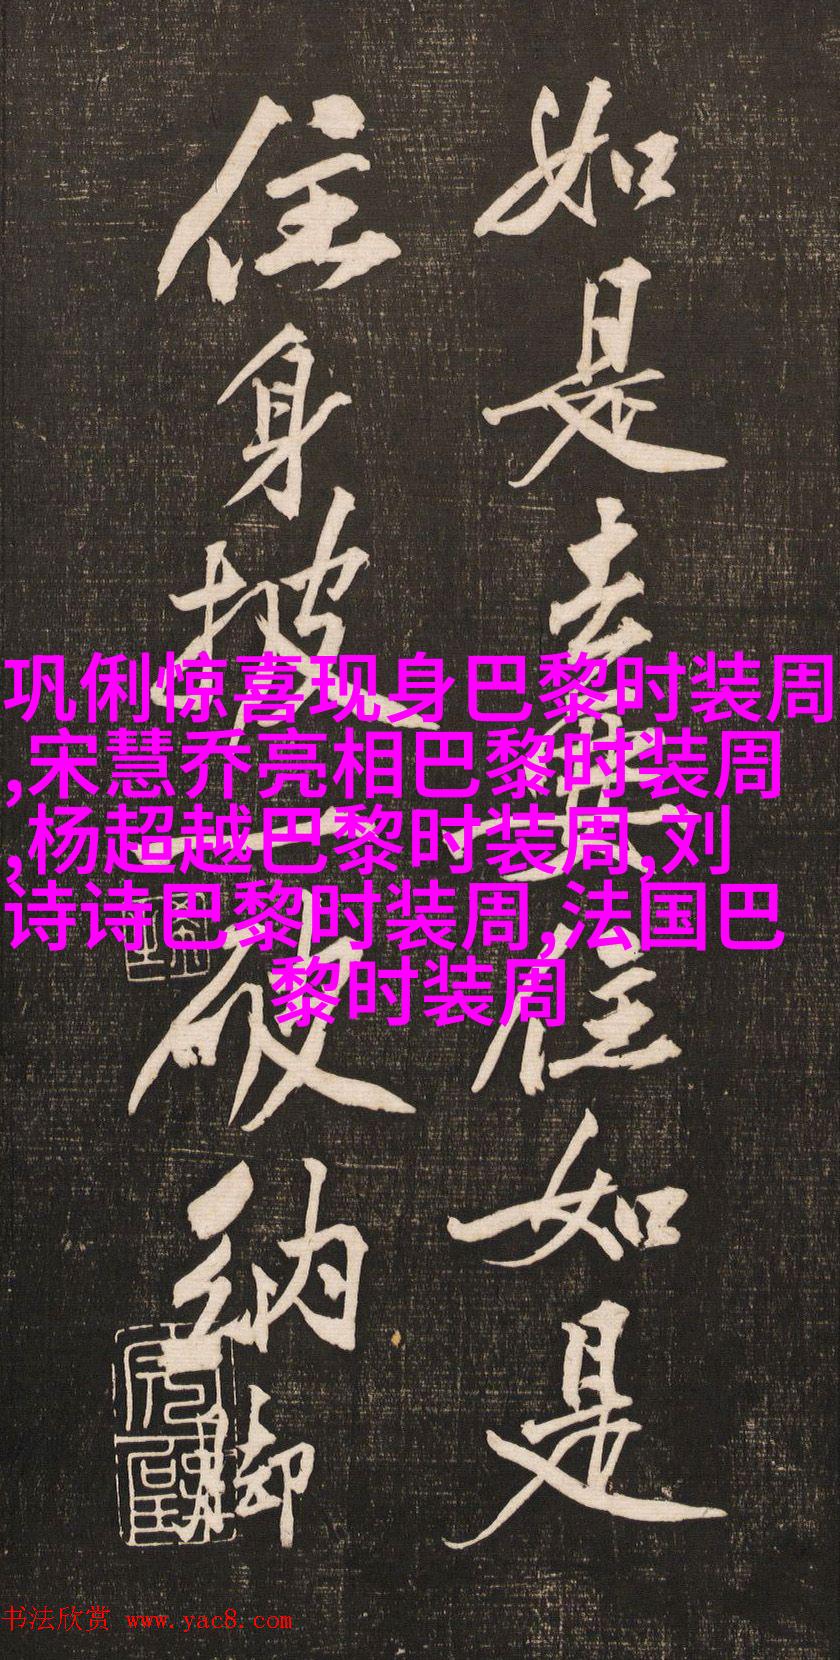 如是去来住如是
住身披一破纳脚
巩俐惊喜现身巴黎时装周
,宋慧乔亮相巴黎时装周
,杨超越巴黎时装周,刘
诗诗巴黎时装周,法国巴
黎时装周
书法欣赏 www.yac8.com